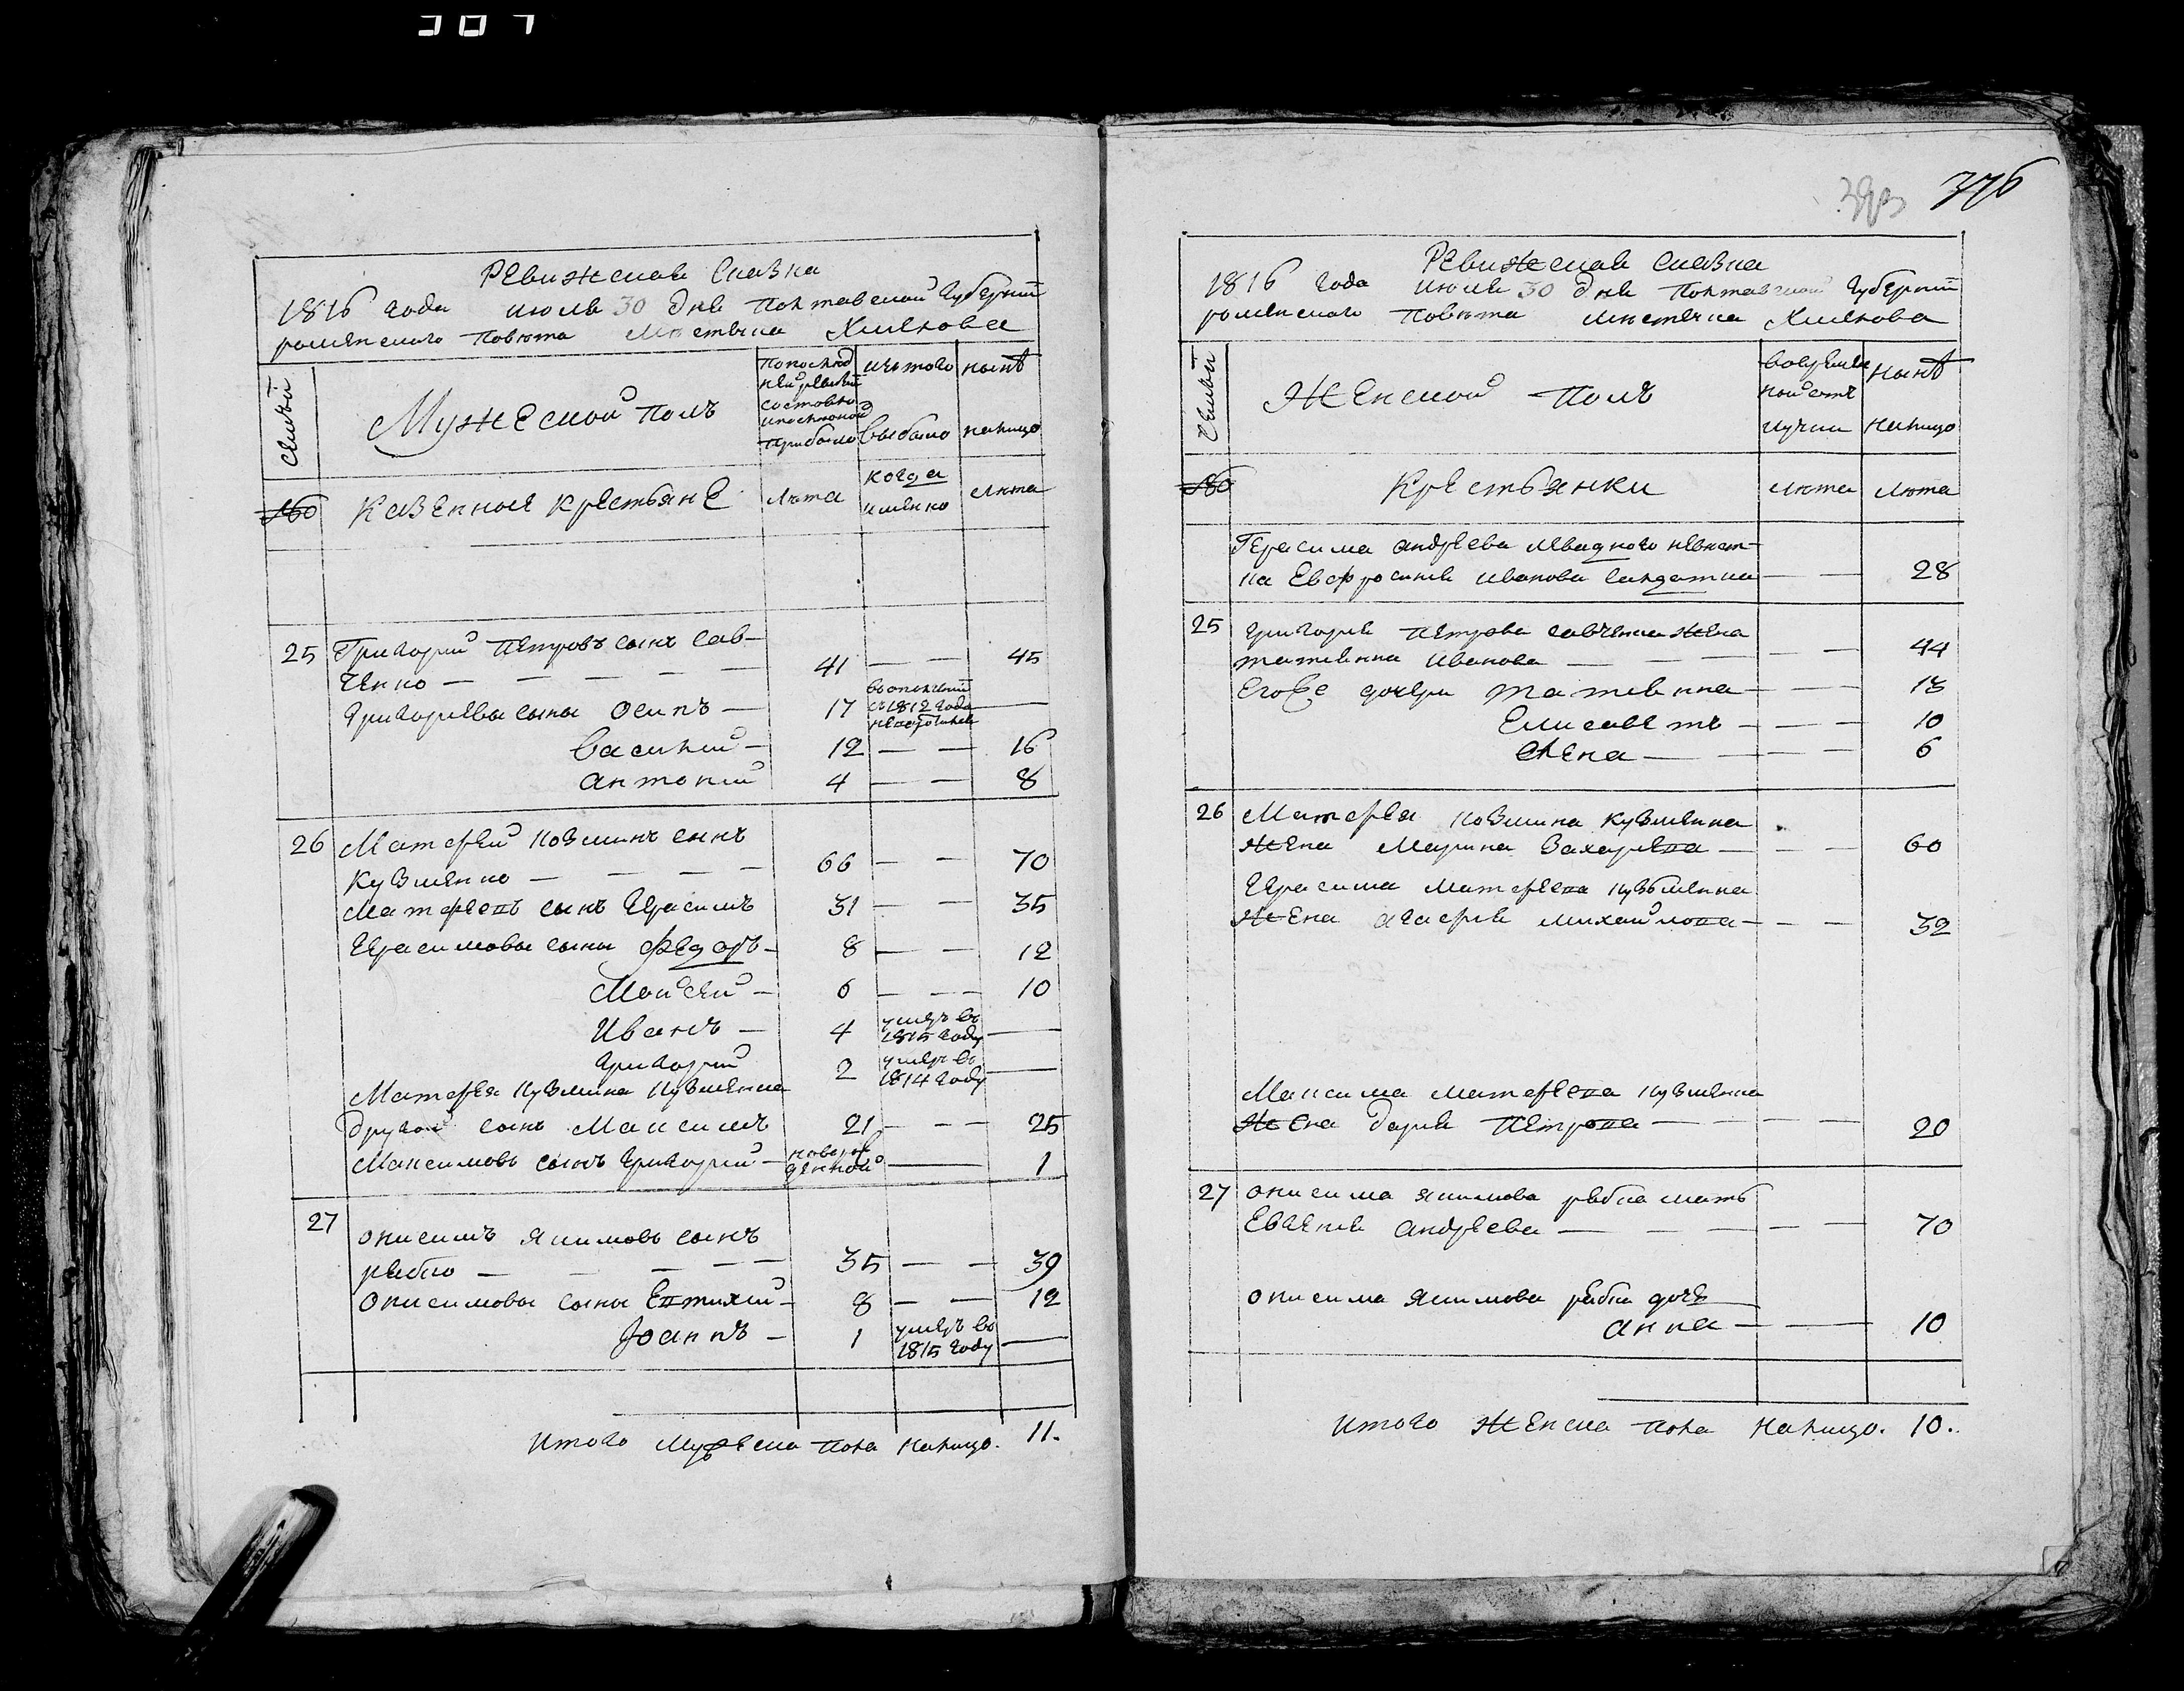 307
Ревижская сказка
1816 года июля 30 дня Полтавской Губернии
роменского повѣта мѣстечка Хмелова
Семьи
Мужеской полъ
По послѣд
ней ревизіи
состояло
и послѣ оной
прибыло
изъ того
выбыло
нынѣ
налицо
Казенныя крестьяне
лѣта
когда
именно
лѣта
25 Григорий Петровъ сынъ Сав-
ченко — — — — 41 — — 45
Григориевы сыны Осипъ — 17 въ ополчении
съ 1812 года
—
Василий — 12 — — 16
антоний 4 — — 8
26 Матфей Козминъ сынъ
Кузменко — — — — 66 — — 70
Матфеевъ сынъ Герасимъ 31 — — 35
Герасимовы сыны Федоръ — 8 — — 12
Мойсей — 6 — — 10
Иванъ — 4 умеръ въ
1815 году —
Григорий 2 умеръ въ
1814 году —
Матфея Кузмина Кузменка
другой сынъ Максимъ 21 — — 25
Максимовъ сынъ Григорий — новорож
денной — 1
27 онисимъ Якимовъ сынъ
рябко — — — — 35 — — 39
Онисимовы сыны Евтихий — 8 — — 12
Іоаннъ — 1 умеръ въ
1815 году —
Итого мужеска пола налицо. 11.
376
Ревижская сказка
1816 года июля 30 дня Полтавской Губернии
роменского повѣта мѣстечка Хмелова
Семьи
Женской полъ
во времен
ной отъ
лучки
нынѣ
налицо
Крестьянки
лѣта лѣта
Герасима андреева невѣст-
ка Евфросиния иванова салдатка — — 28
25 Григория Петрова савченка жена
татиянна иванова — — — — — 44
Его же дочери татиянна — — — 13
Елисаветъ — — — 10
елена — — — 6
26 Матфея козмина кузменка
жена Марина Захариева — — — 60
Герасима матфеева кузменка
жена агафия михайлова — — — 32
Максима матфеева кузменка
жена дария Петрова — — — 20
27 онисима якимова рябка мать
Евгения андреева — — — — 70
онисима якимова рябка дочь
анна — — 10
Итого женска пола налицо. 10.